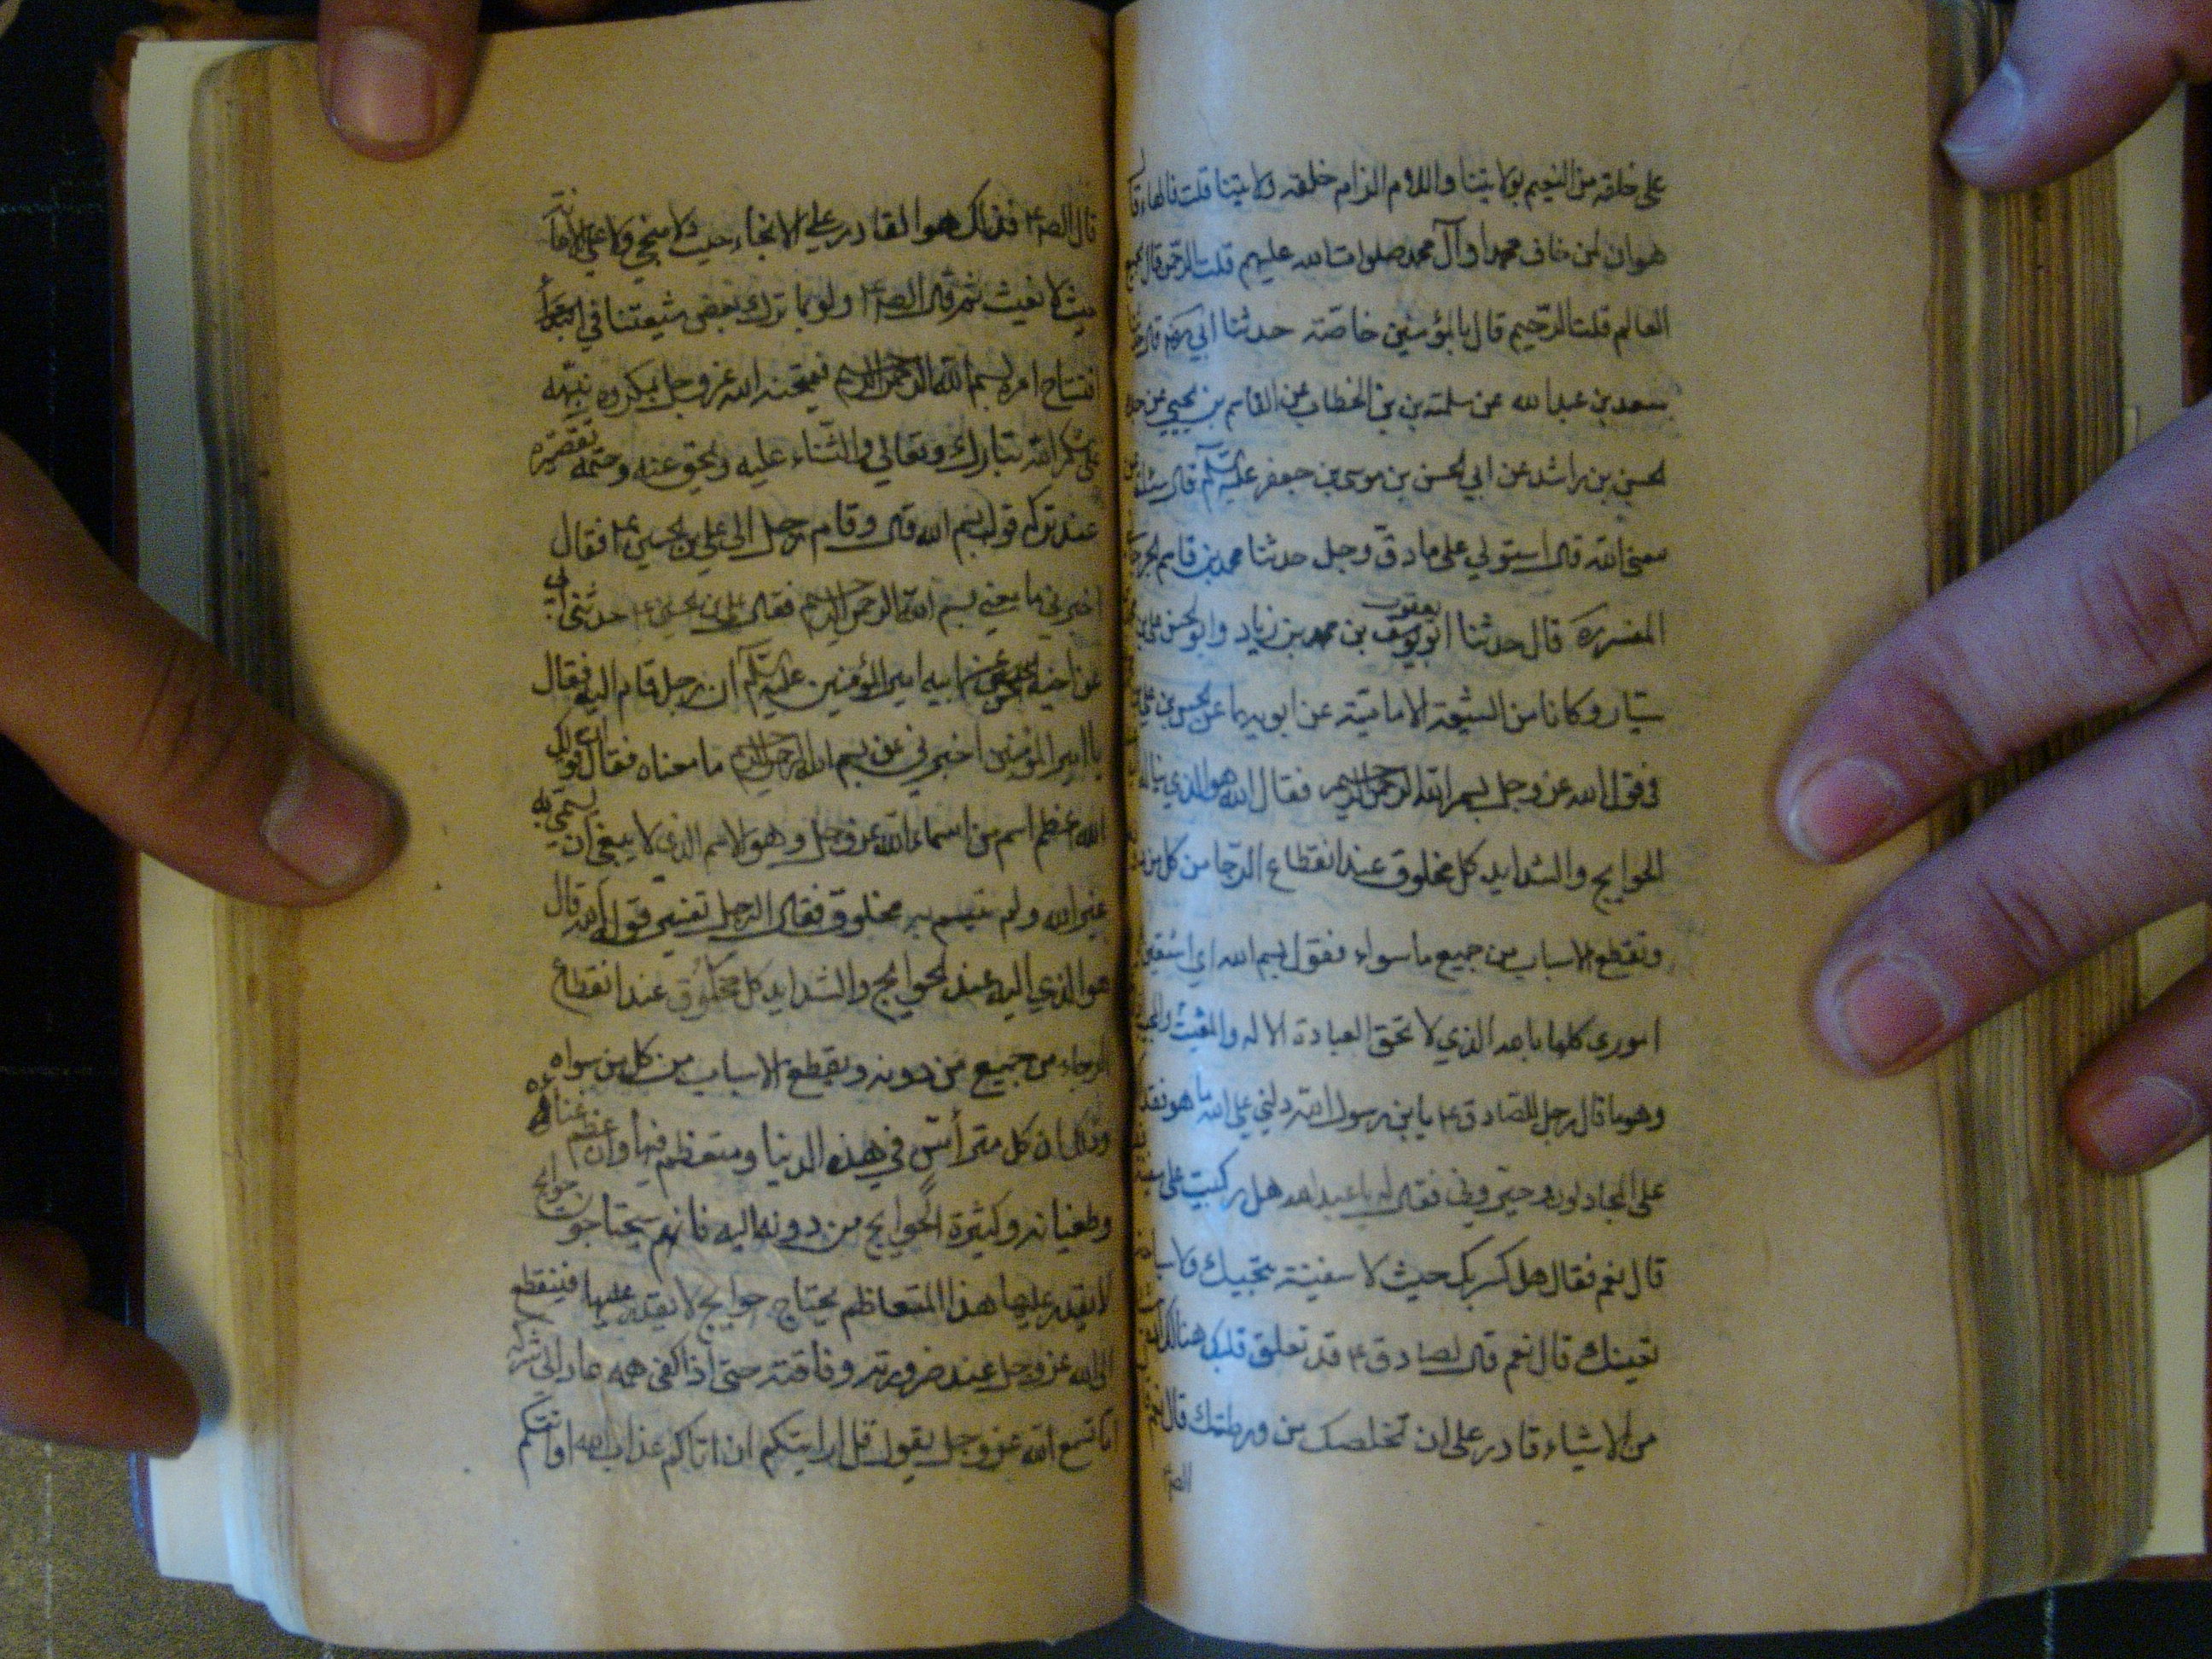 على خلقه من النعيم بولايتنا واللام الزام خلقه ولايتنا قلت فالهاء قال
هوان لمن خاف محمدا وآل محمد صلوات الله عليهم قلت الرحمن قال بجميع
العالم قلت الرحيم قال بالمؤمنين خاصة حدثنا ابي ره قال
سعد بن عبد الله عن سلمة بن الخطاب عن القاسم بن يحيى عن جده
الحسن بن راشد عن ابي الحسن بن موسى بن جعفر عليه السلام قال سئل
معنى الله قال استولى على ما دق وجل حدثنا محمد بن قاسم الجرجاني
المفسر ره قال حدثنا ابو يعقوب يوسف بن محمد بن زياد وابو الحسن علي بن
سيار وكانا من الشيعة الامامية عن ابويهما عن الحسن بن علي
في قول الله عز وجل بسم الله الرحمن الرحيم فقال الله هو الذي يتاله
الحوايج والشدايد كل مخلوق عند انقطاع الرجا من كل من
وتقطع الاسباب من جميع ما سواه فقول بسم الله اي استعين
اموري كلها بالله الذي لا تحق العبادة الا له والمغيث
وهو ما قال رجل للصادق ع يا بن رسول الله دلني على الله ما هو فقد
على المجادلون وحيروني فقال له يا عبد الله هل ركبت على سفينة
قال نعم فقال هل كسر بك حيث لا سفينة تنجيك ولا سباحة
تغينك قال نعم قال الصادق ع قد تعلق قلبك هنالك
من الاشياء قادر على ان تخلصك من ورطتك قال نعم
الص ع
قال الص ع فذلك هو القادر على الانجاء حيث لا منجي وعلى الاغاثة
حيث لا مغيث ثم قال الص ع ولو بما ترك بعض شيعتنا في
افتتاح امره بسم الله الرحمن الرحيم فيمتحنه الله عز وجل بمكروه ينبهه
على شكر الله تبارك وتعالى والثناء عليه ويحق عنه وصمة تقصيره
عند تركه قول بسم الله قال وقام رجل الى علي بن الحسين ع فقال
اخبرني ما معنى بسم الله الرحمن الرحيم فقال علي بن الحسين ع حدثني ابي
عن اخيه الحسن عن ابيه امير المؤمنين عليه السلام ان رجل قام اليه فقال
يا امير المؤمنين اخبرني عن بسم الله الرحمن الرحيم ما معناه فقال ان قولك
الله اعظم اسم من اسماء الله عز وجل وهو الاسم الذي لا ينبغي ان يسمى به
غير الله ولم يتسم به مخلوق فقال الرجل تفسير قوله الله قال
هو الذي اليه عند الحوايج والشدايد كل مخلوق عند انقطاع
الرجاء من جميع من دونه ويقطع الاسباب من كل من سواه
وذلك ان كل مترأس في هذه الدنيا ومتعظم فيها وان عظم غناه
وطغيانه وكثرة الحوايج من دونه اليه فانهم سيحتاجون حوايج
لا يقدر عليها هذا المتعاظم يحتاج حوايج لا يقدر عليها فينقطع
الى الله عز وجل عند ضرورته وفاقته حتى اذا كفى همه عاد الى شركه
اما تسمع الله عز وجل يقول قل ارايتكم ان اتاكم عذاب الله او اتتكم